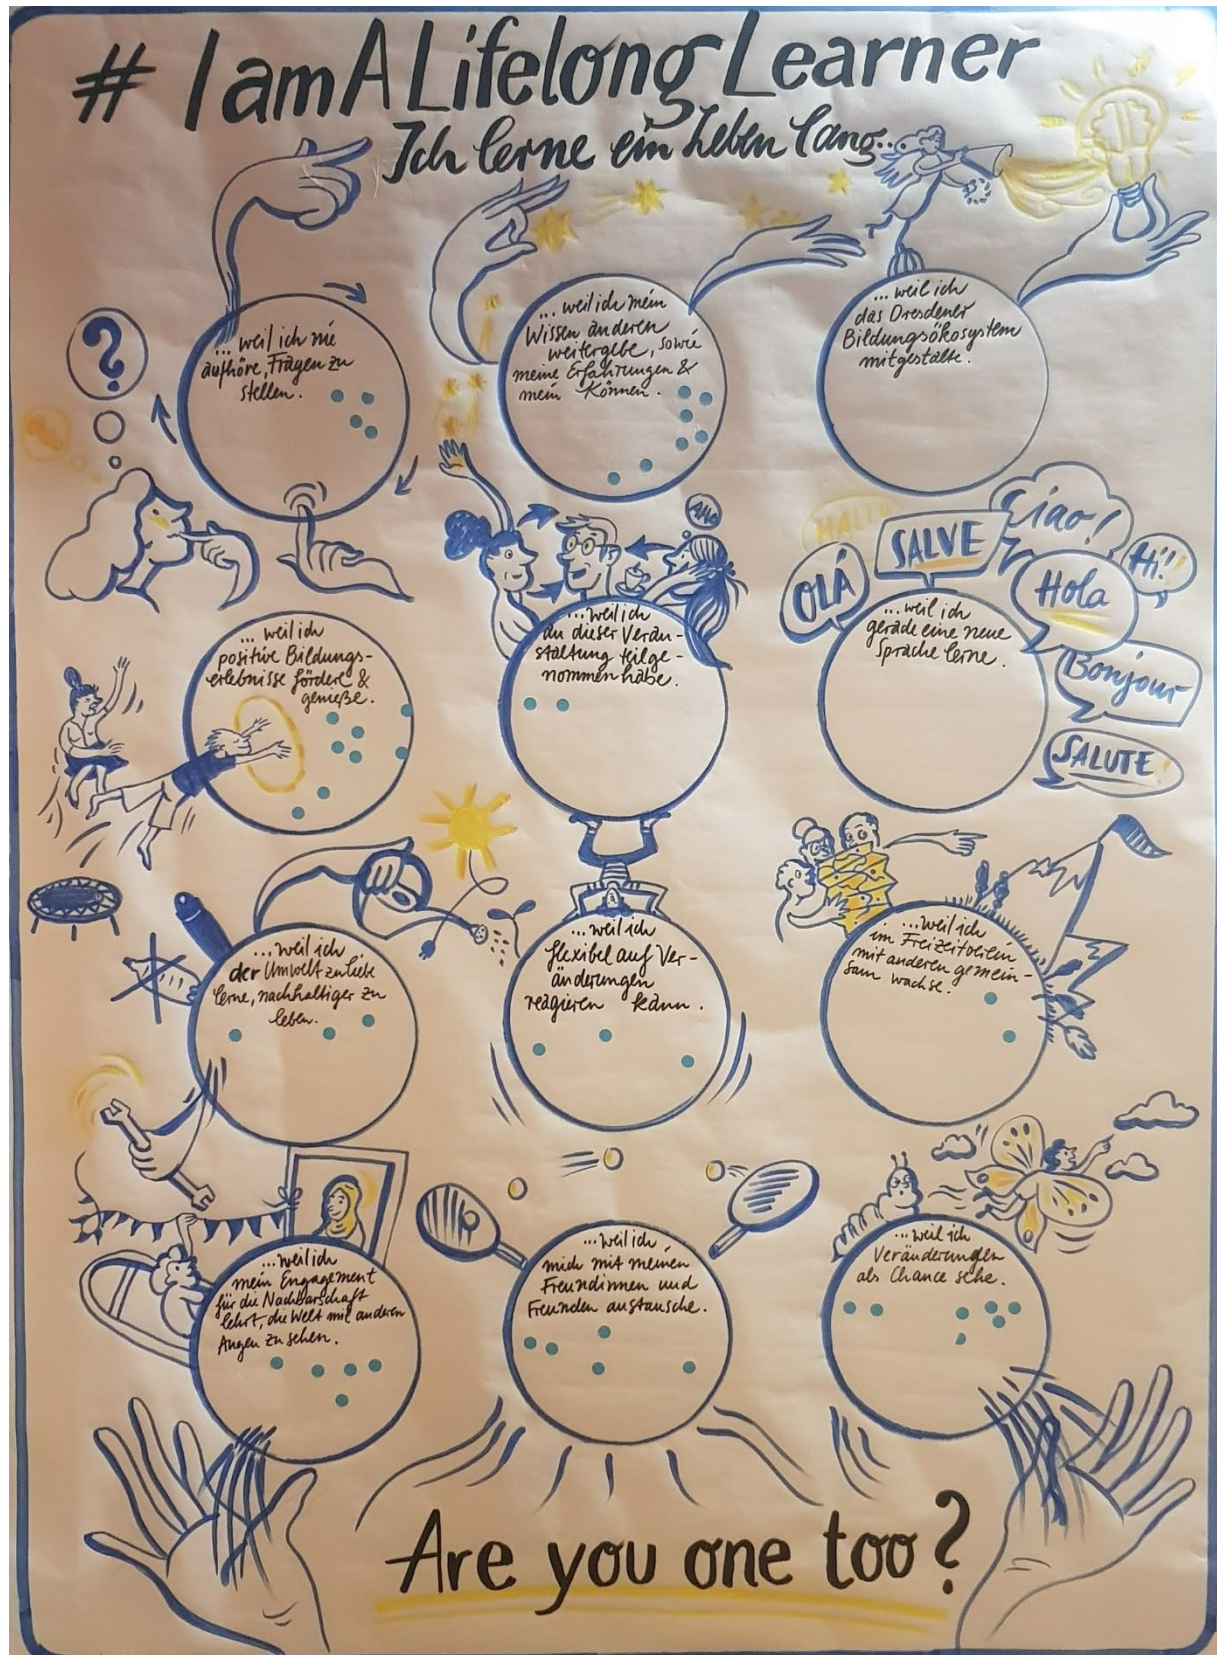 # I am A Lifelong Learner
Ich lerne ein Leben lang...
... weil ich nie
aufhöre, Fragen zu
stellen.
... weil ich mein
Wissen anderen
weitergebe, sowie
meine Erfahrungen &
mein Können.
... weil ich
das Dresdener
Bildungsökosystem
mitgestalte.
?
... weil ich
positive Bildungs-
erlebnisse fördere &
genieße.
AHA
... weil ich
an dieser Veran-
staltung teilge-
nommen habe.
HALLO
OLÁ
SALVE
Ciao!
Hi!
Hola
Bonjour
SALUTE!
... weil ich
gerade eine neue
Sprache lerne.
... weil ich
der Umwelt zu liebe
lerne, nachhaltiger zu
leben.
... weil ich
flexibel auf Ver-
änderungen
reagieren kann.
... weil ich
im Freizeitverein
mit anderen gemein-
sam wachse.
... weil ich
mein Engagement
für die Nachbarschaft
lehrt, die Welt mit anderen
Augen zu sehen.
... weil ich
mich mit meinen
Freundinnen und
Freunden austausche.
... weil ich
Veränderungen
als Chance sehe.
Are you one too?